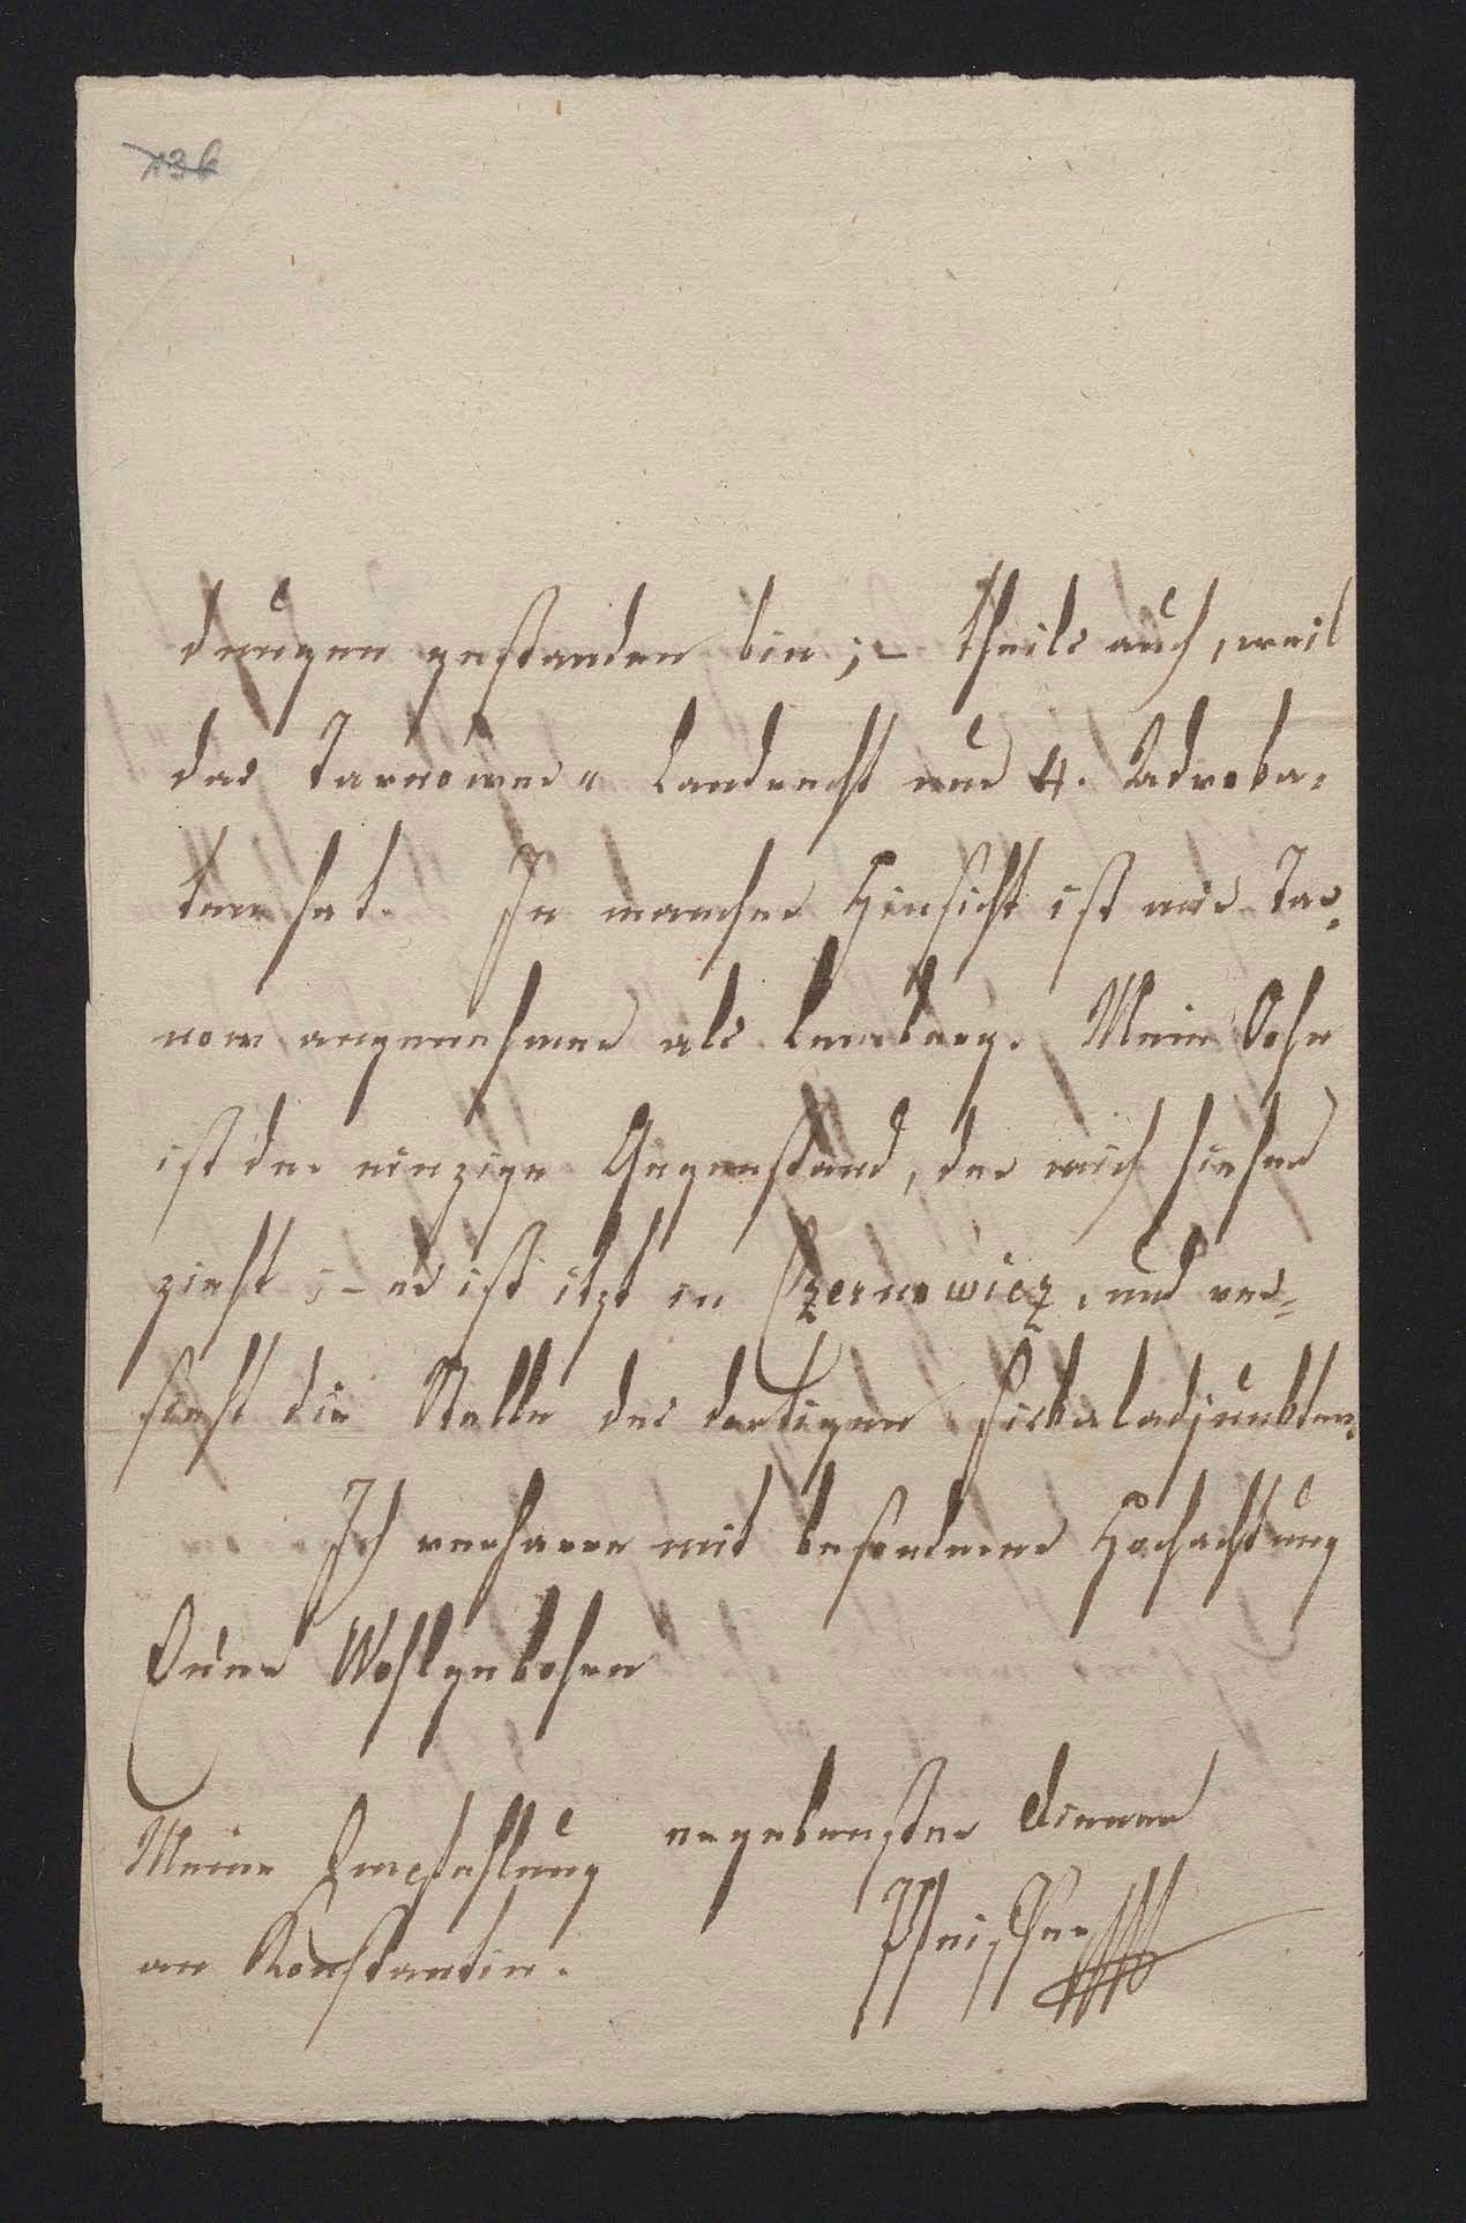 dungen gestanden bin; – theils auch, weil
das Tarnower Landrecht nur 4. Advoka-
ten hat. In mancher Hinsicht ist mir Tar-
now angenehmer als Lemberg. Mein Sohn
ist der einzige Gegenstand, der mich hieher
zieht; – er ist itzt in Czernowicz, und ver-
sieht die Stelle des dortigen Fiskaladjunkten.
Ich verharre mit besonderer Hochachtung
Euer Wohlgebohren
ergebenster Diener
Meine Empfehlung
an Konstantin.